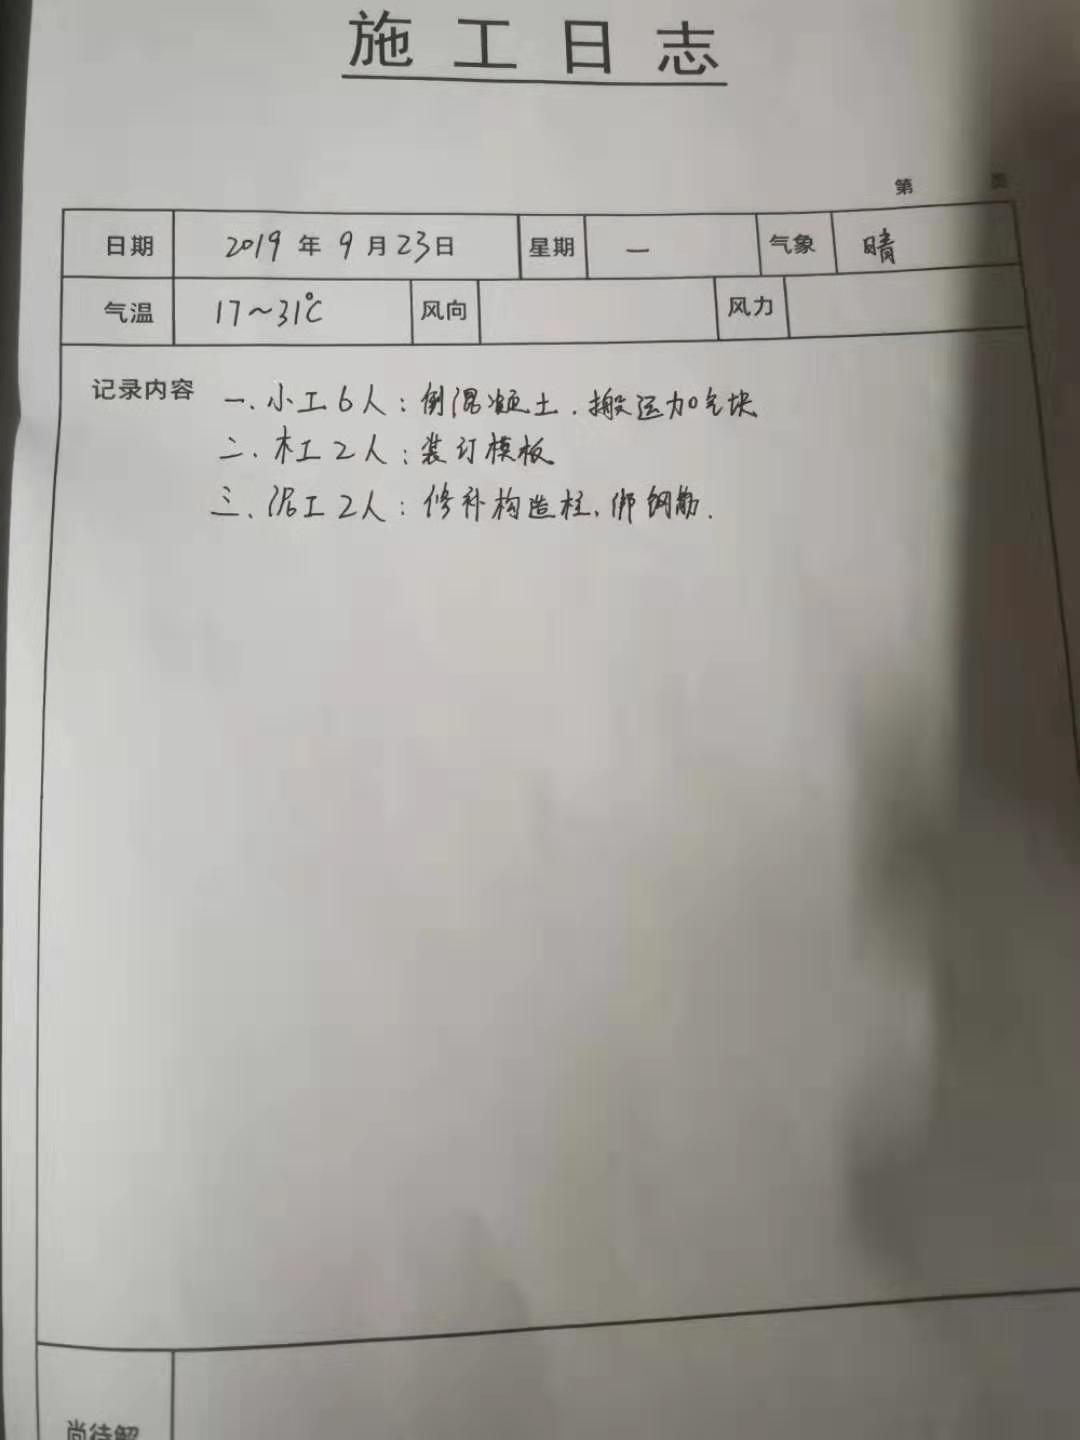 施工日志
第 页
日期 2019年9月23日 星期 一 气象 晴
气温 17~31℃ 风向 风力
记录内容 一、小工6人：倒混凝土、搬运加气块
二、木工2人：装订模板
三、泥工2人：修补构造柱、绑钢筋.
尚待解